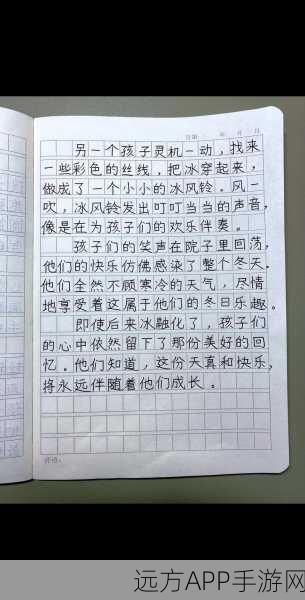 日期: 年 月 日
另一个孩子灵机一动，找来
一些彩色的丝线，把冰穿起来，
做成了一个小小的冰风铃。风一
吹，冰风铃发出叮叮当当的声音，
像是在为孩子们的欢乐伴奏。
孩子们的笑声在院子里回荡，
他们的快乐仿佛感染了整个冬天。
他们全然不顾寒冷的天气，尽情
地享受着这属于他们的冬日乐趣。
即使后来冰融化了，孩子们
的心中依然留下了那份美好的回
忆。他们知道，这份天真和快乐，
将永远伴随着他们成长。
评语:
远方APP手游网